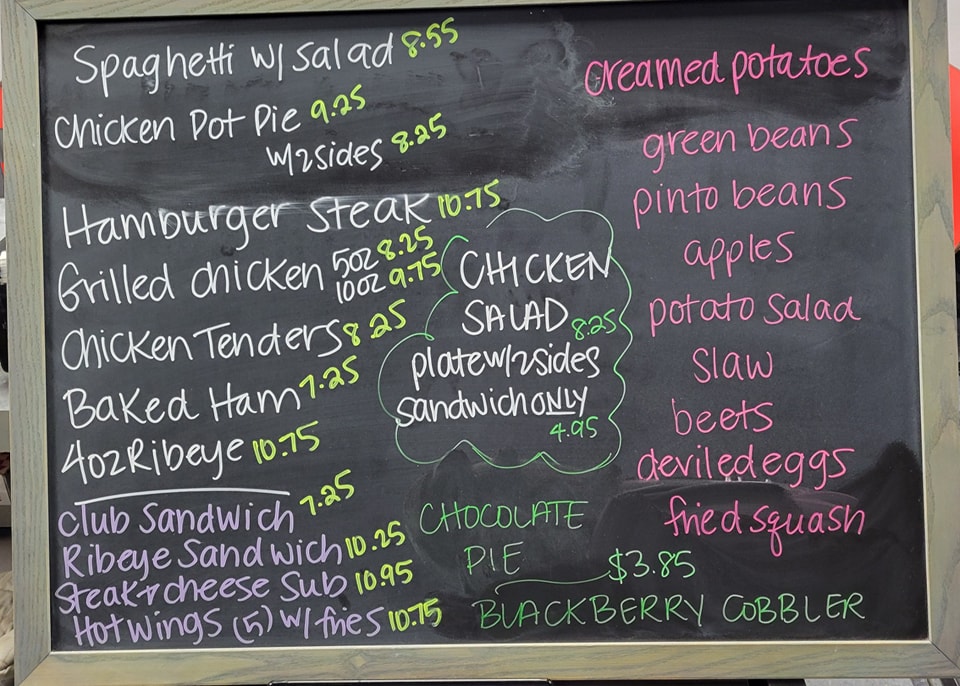 Spaghetti w/ salad 8.55
Chicken Pot Pie 9.25
w/2sides 8.25
Hamburger steak 10.75
Grilled chicken 5oz 8.25
10oz 9.75
Chicken Tenders 8.25
Baked Ham 7.25
4oz Ribeye 10.75
club sandwich 7.25
Ribeye Sandwich 10.25
Steak & cheese Sub 10.95
Hot wings (5) w/ fries 10.75
CHICKEN
SALAD 8.25
plate w/2sides
sandwich ONLY
4.95
CHOCOLATE
PIE
$3.85
BLACKBERRY COBBLER
creamed potatoes
green beans
pinto beans
apples
potato salad
slaw
beets
deviled eggs
fried squash